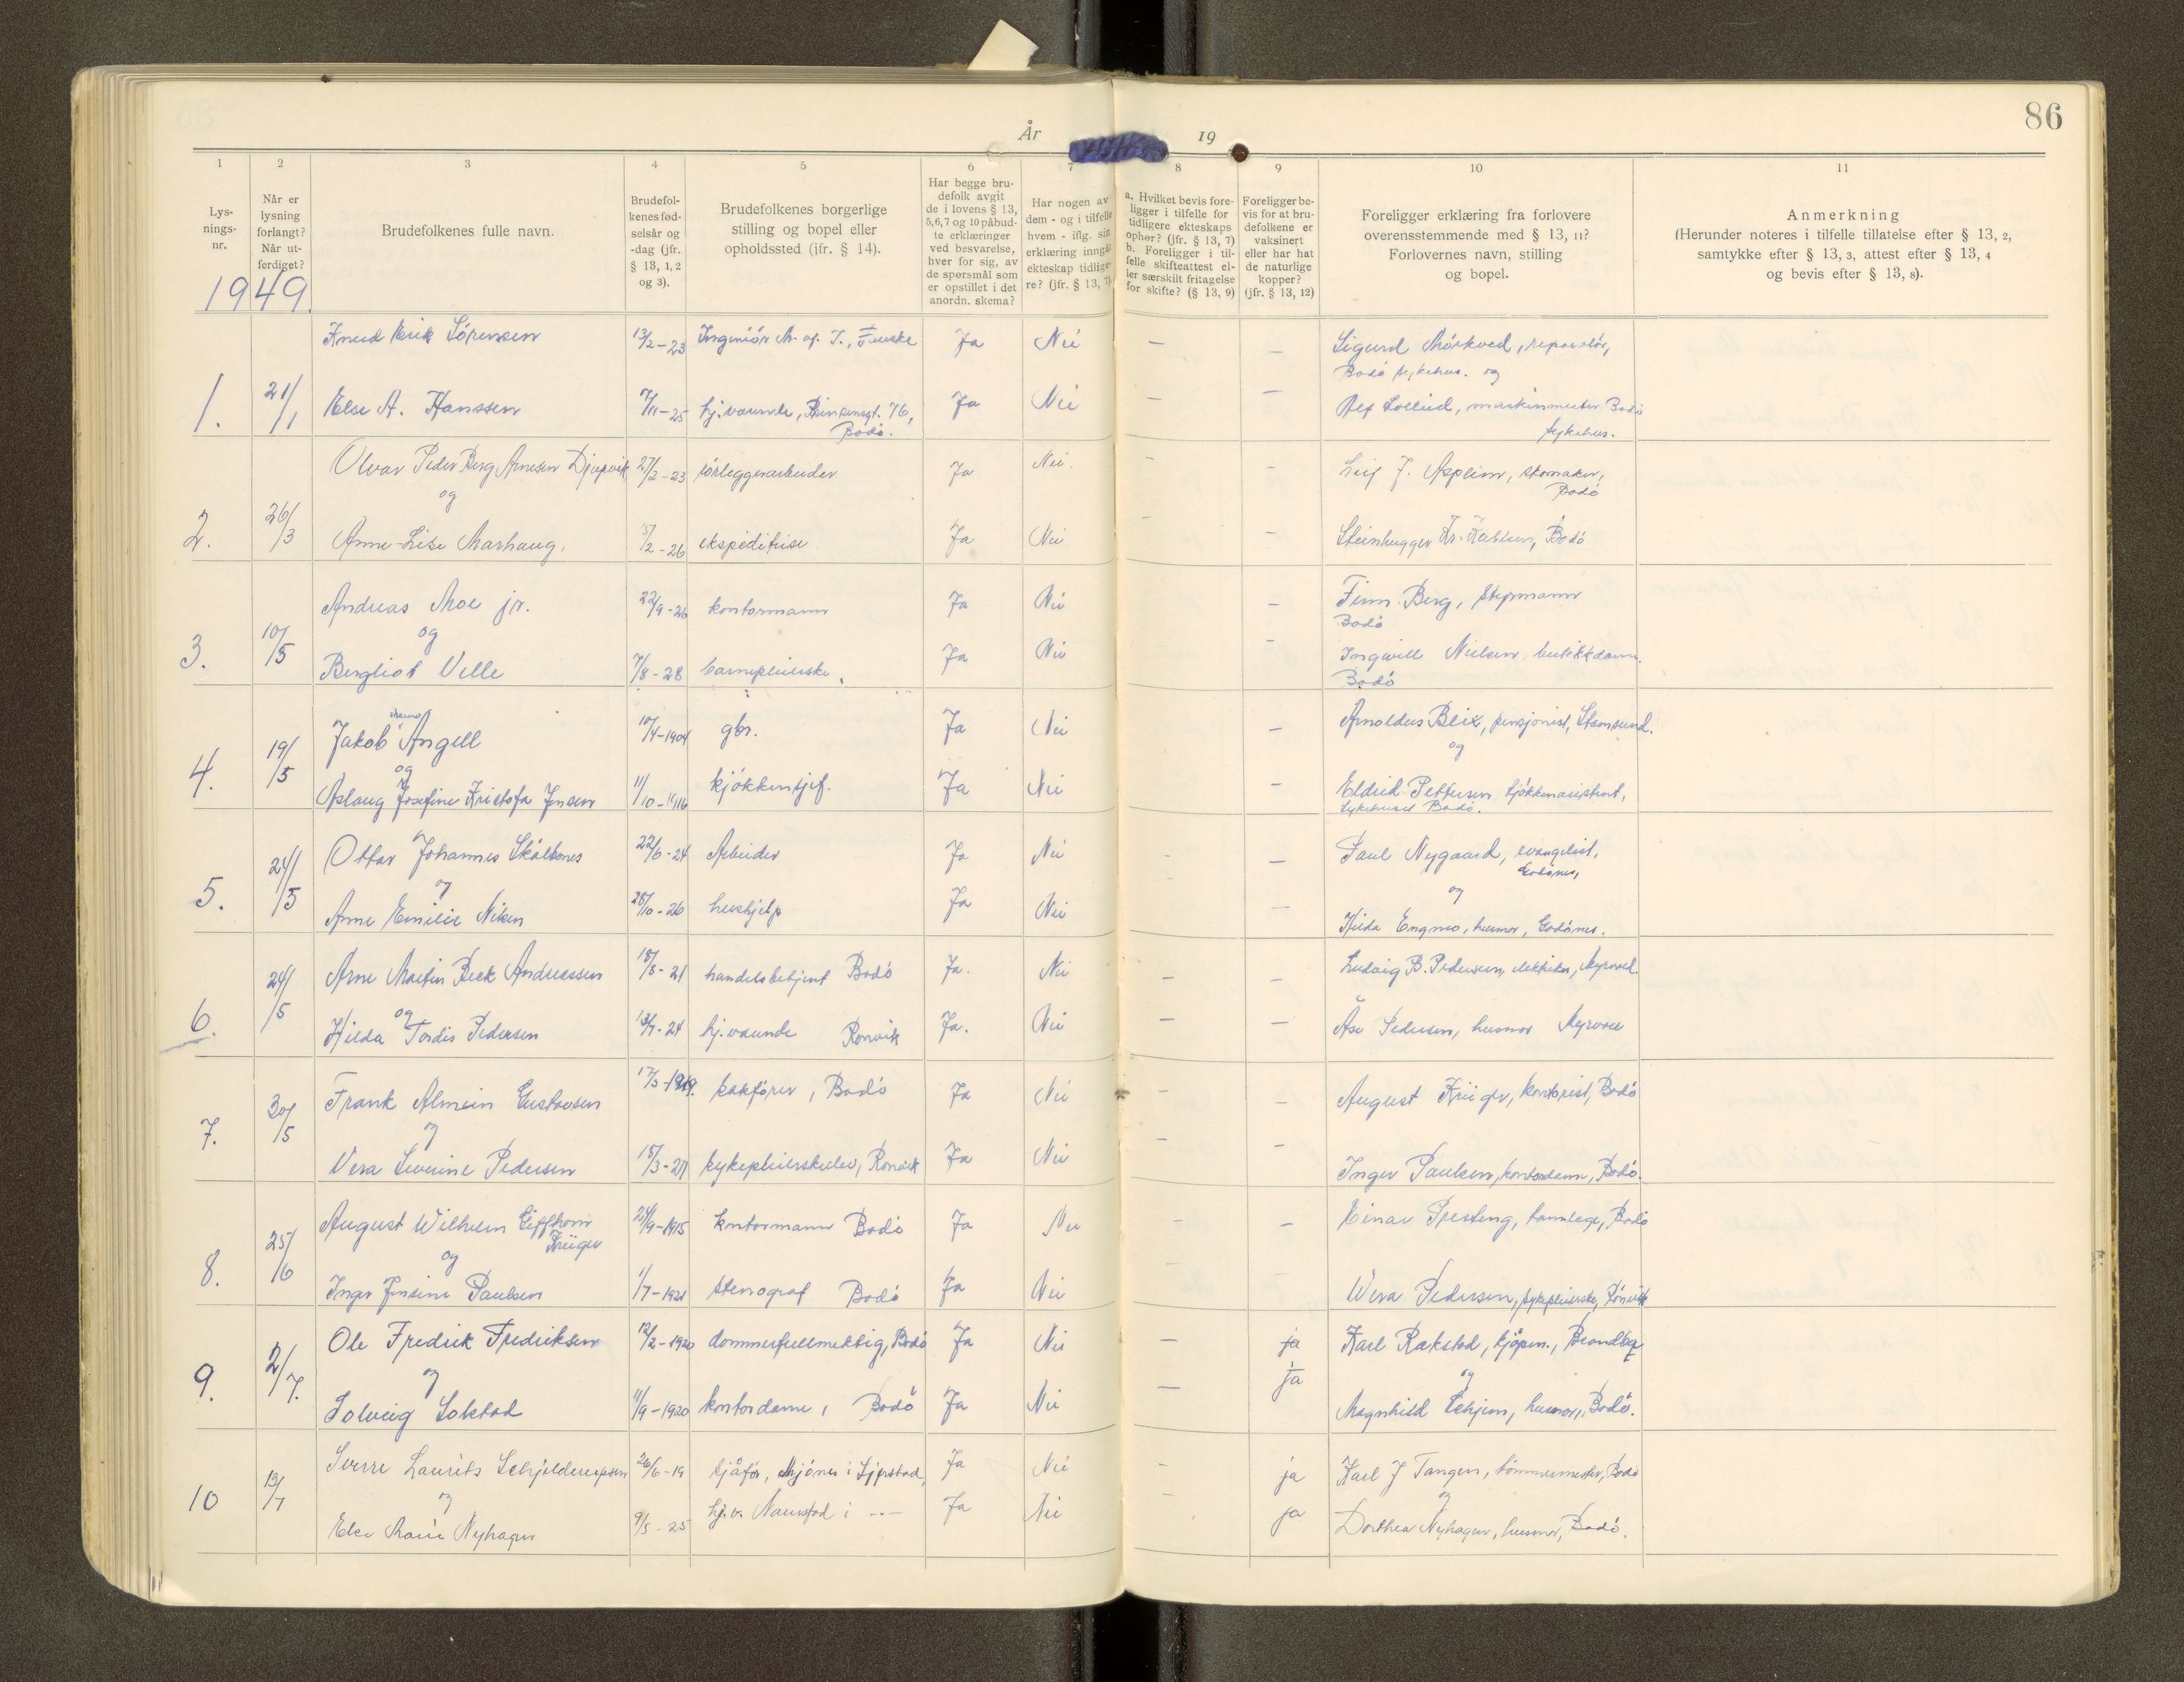 86
År 19
1 2 3 4 5 6 7 8 9 10 11
Lysningsnr.
Når er lysning forlangt? Når utferdiget?
Brudefolkenes fulle navn.
Brudefolkenes fødselsår og -dag (jfr. § 13, 1, 2 og 3).
Brudefolkenes borgerlige stilling og bopel eller opholdssted (jfr. § 14).
Har begge brudefolk avgit de i lovens § 13, 5,6,7 og 10 påbudte erklæringer ved besvarelse, hver for sig, av de spørsmål som er opstillet i det anordn. skema?
Har nogen av dem - og i tilfelle hvem - iflg. sin erklæring inngått ekteskap tidligere? (jfr. § 13, 7)
a. Hvilket bevis foreligger i tilfelle for tidligere ekteskaps ophør? (jfr. § 13, 7) b. Foreligger i tilfelle skifteattest eller særskilt fritagelse for skifte? (§ 13, 9)
Foreligger bevis for at brudefolkene er vaksinert eller har hat de naturlige kopper? (jfr. § 13, 12)
Foreligger erklæring fra forlovere overensstemmende med § 13, 11? Forlovernes navn, stilling og bopel.
Anmerkning (Herunder noteres i tilfelle tillatelse efter § 13, 2, samtykke efter § 13, 3, attest efter § 13, 4 og bevis efter § 13, 8).
1949.
Knud Erik Sørensen 13/2-23 Ingeniør Ja Nei — — Sigurd Mørkved, reparatør,
Bodø sykehus. og
1. 21/1 Else A. Hanssen 7/11-25 hj.værende, Prinsensgt. 76, Ja Nei — — Alf Sollied, maskinmester Bodø
Bodø. sykehus.
Olvar Peder Berg Arnesen Djupvik 27/2-23 rørleggerarbeider Ja Nei. - - Leif J. Asplien, skomaker,
og Bodø
2. 26/3 Anne-Lise Marhaug. 15/2-26 ekspeditrise Ja Nei - - Steinhugger Kr. Karlsen, Bodø
Andreas Moe jr. 22/9-26 kontormann Ja Nei — Finn Berg, styrmann
og Bodø
3. 10/5 Bergliot Velle 7/8-28 barnepleierske. Ja Nei - Nielsen, butikkdame.
Bodø
Jakob Angell 10/4-1904 gbr. Ja Nei — Arnoldus Blix, pensjonist, Stamsund.
og og
4. 19/5 Aslaug Josefine Kristofa Jensen 11/10-1916 kjøkkensjef. Ja Nei — Eldrid Pettersen kjøkkenassistent,
Sykehuset Bodø.
Ottar Johannes Skålbones 22/6-24 Arbeider Ja Nei - — Paul Nygaard, evangelist,
og Godønes,
og
5. 24/5 Anne Emilie Nilsen 28/10-26 hushjelp Ja Nei - — Hilda Engmo, husmor, Godønes.
Arne Martin Beck Andreassen 18/8-21 handelsbetjent Bodø Ja. Nei — — Ludvig B. Pedersen, elektriker,
og
6. 24/5 Hilda Tordis Pedersen 13/7-24 hj.værende Rønvik Ja. Nei — — Åse Pedersen, husmor
Frank Almein Gustavsen 17/5-1919. Bodø Ja Nei - — August Krüger, kontorist, Bodø
og
7. 30/5 Vera Severine Pedersen 18/3-27 sykepleierskeelev, Rønvik Ja Nei - - Inger Paulsen, kontordame, Bodø.
August Wilhelm 24/9-1915 kontormann Bodø Ja Nei - — Einar Presteng, tannlege, Bodø
Krüger
og
8. 25/6 Inger Jensine Paulsen 1/7-1921 stenograf Bodø Ja Nei Wera Pedersen, sykepleierske, Rønvik
Ole Fredrik Fredriksen 12/2-1920 dommerfullmektig, Bodø Ja Nei — ja Karl Rakstad, kjøpm.,
og og
9. 2/7. Solveig Solstad 11/9-1920 kontordame, Bodø Ja Nei — ja Magnhild husmor, Bodø.
Sverre Laurits Schjelderupsen 26/6-19 sjåfør, Mjønes i Skjerstad, Ja Nei - ja Karl J Tangen, tømmermester, Bodø
og og
10 13/7 Else Marie Nyhagen 9/5-25 hj.v. i -- Ja Nei - ja Dorthea Nyhagen, husmor, Bodø.